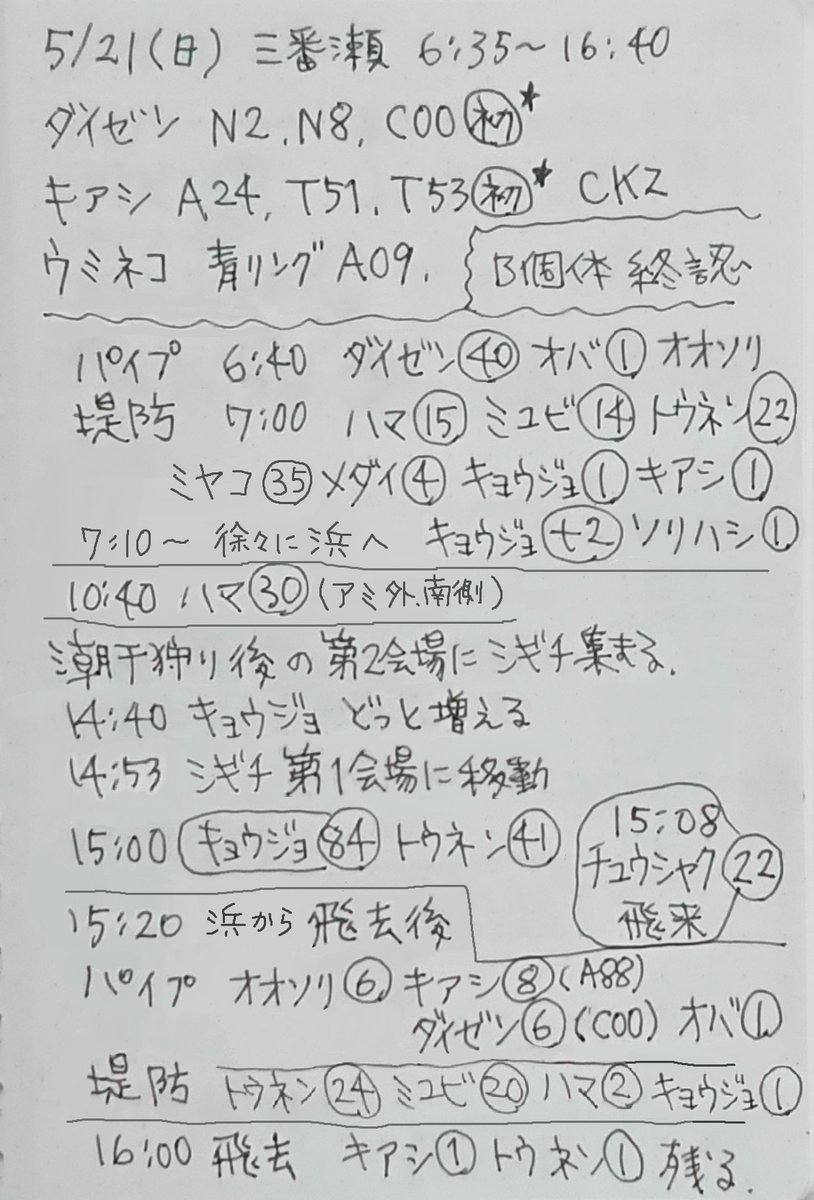 5/21(日) 三番瀬 6:35～16:40
ダイゼン N2, N8, C00 初*
キアシ A24, T51, T53 初* CKZ
ウミネコ 青リング A09. B個体 終認
パイプ 6:40 ダイゼン 40 オバ 1 オオソリ
堤防 7:00 ハマ 15 ミユビ 14 トウネン 22
ミヤコ 35 メダイ 4 キョウジョ 1 キアシ 1
7:10～ 徐々に浜へ キョウジョ +2 ソリハシ 1
10:40 ハマ 30 (アミ外、南側)
潮干狩り後の第2会場にシギチ集まる.
14:40 キョウジョ どっと増える
14:53 シギチ 第1会場に移動
15:00 キョウジョ 84 トウネン 41
15:08
チュウシャク 22
飛来
15:20 浜から飛去後
パイプ オオソリ 6 キアシ 8 (A88)
ダイゼン 6 (C00) オバ 1
堤防 トウネン 24 ミユビ 20 ハマ 2 キョウジョ 1
16:00 飛去 キアシ 1 トウネン 1 残る.